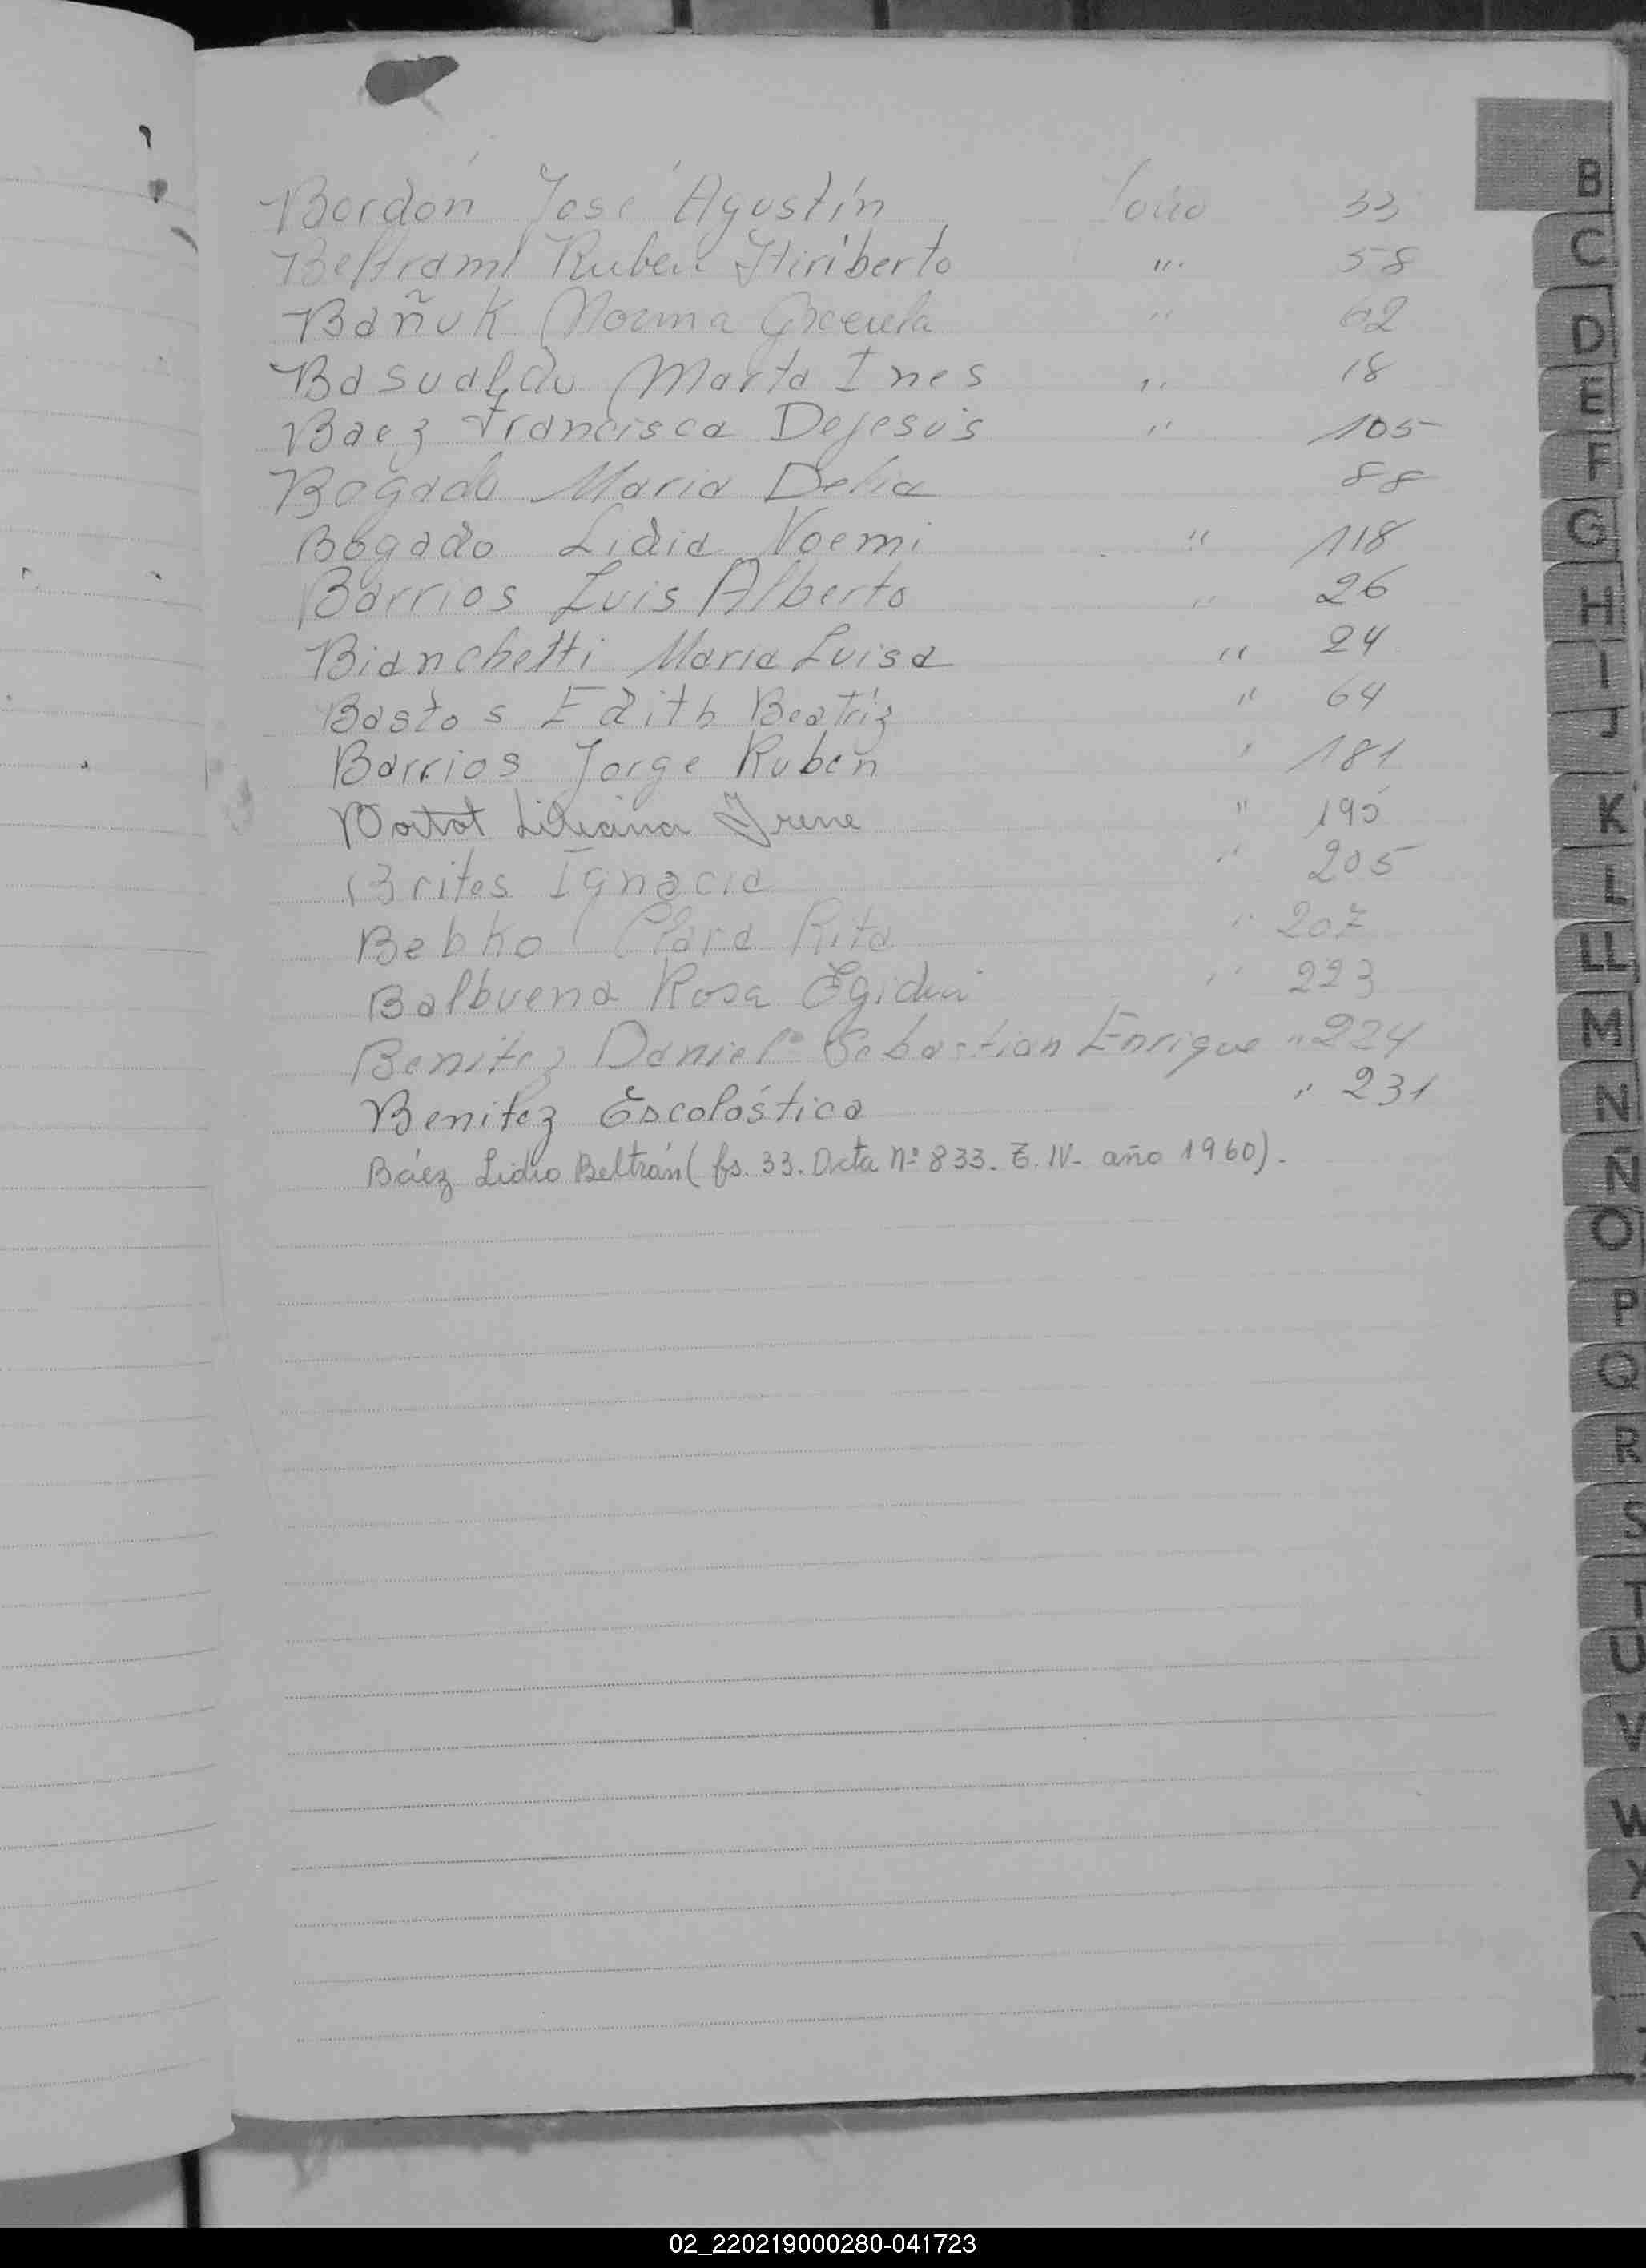 Bordón José Agustín Folio 33
Beltrami Ruben Hiriberto " 58
Bañuk Norma Graciela " 62
Basualdo Marta Ines " 18
Baez Francisca Dejesús " 105
Bogado Maria Delia 88
Bogado Lidia Noemi " 118
Barrios Luis Alberto " 26
Bianchetti Maria Luisa " 24
Bastos Edith Beatriz " 64
Barrios Jorge Ruben " 181
Liliana Irene " 195
Brites Ignacia " 205
Bebko Clara Rita " 207
Balbuena Rosa Egidia " 223
Benitez Daniel Sebastian Enrique " 224
Benitez Escolástica " 231
Báez Lidio Beltrán (fs. 33. Acta Nº 833. T. IV- año 1960).
B
C
D
E
F
G
H
I
J
K
L
LL
M
N
Ñ
O
P
Q
R
S
T
U
V
W
X
02_220219000280-041723